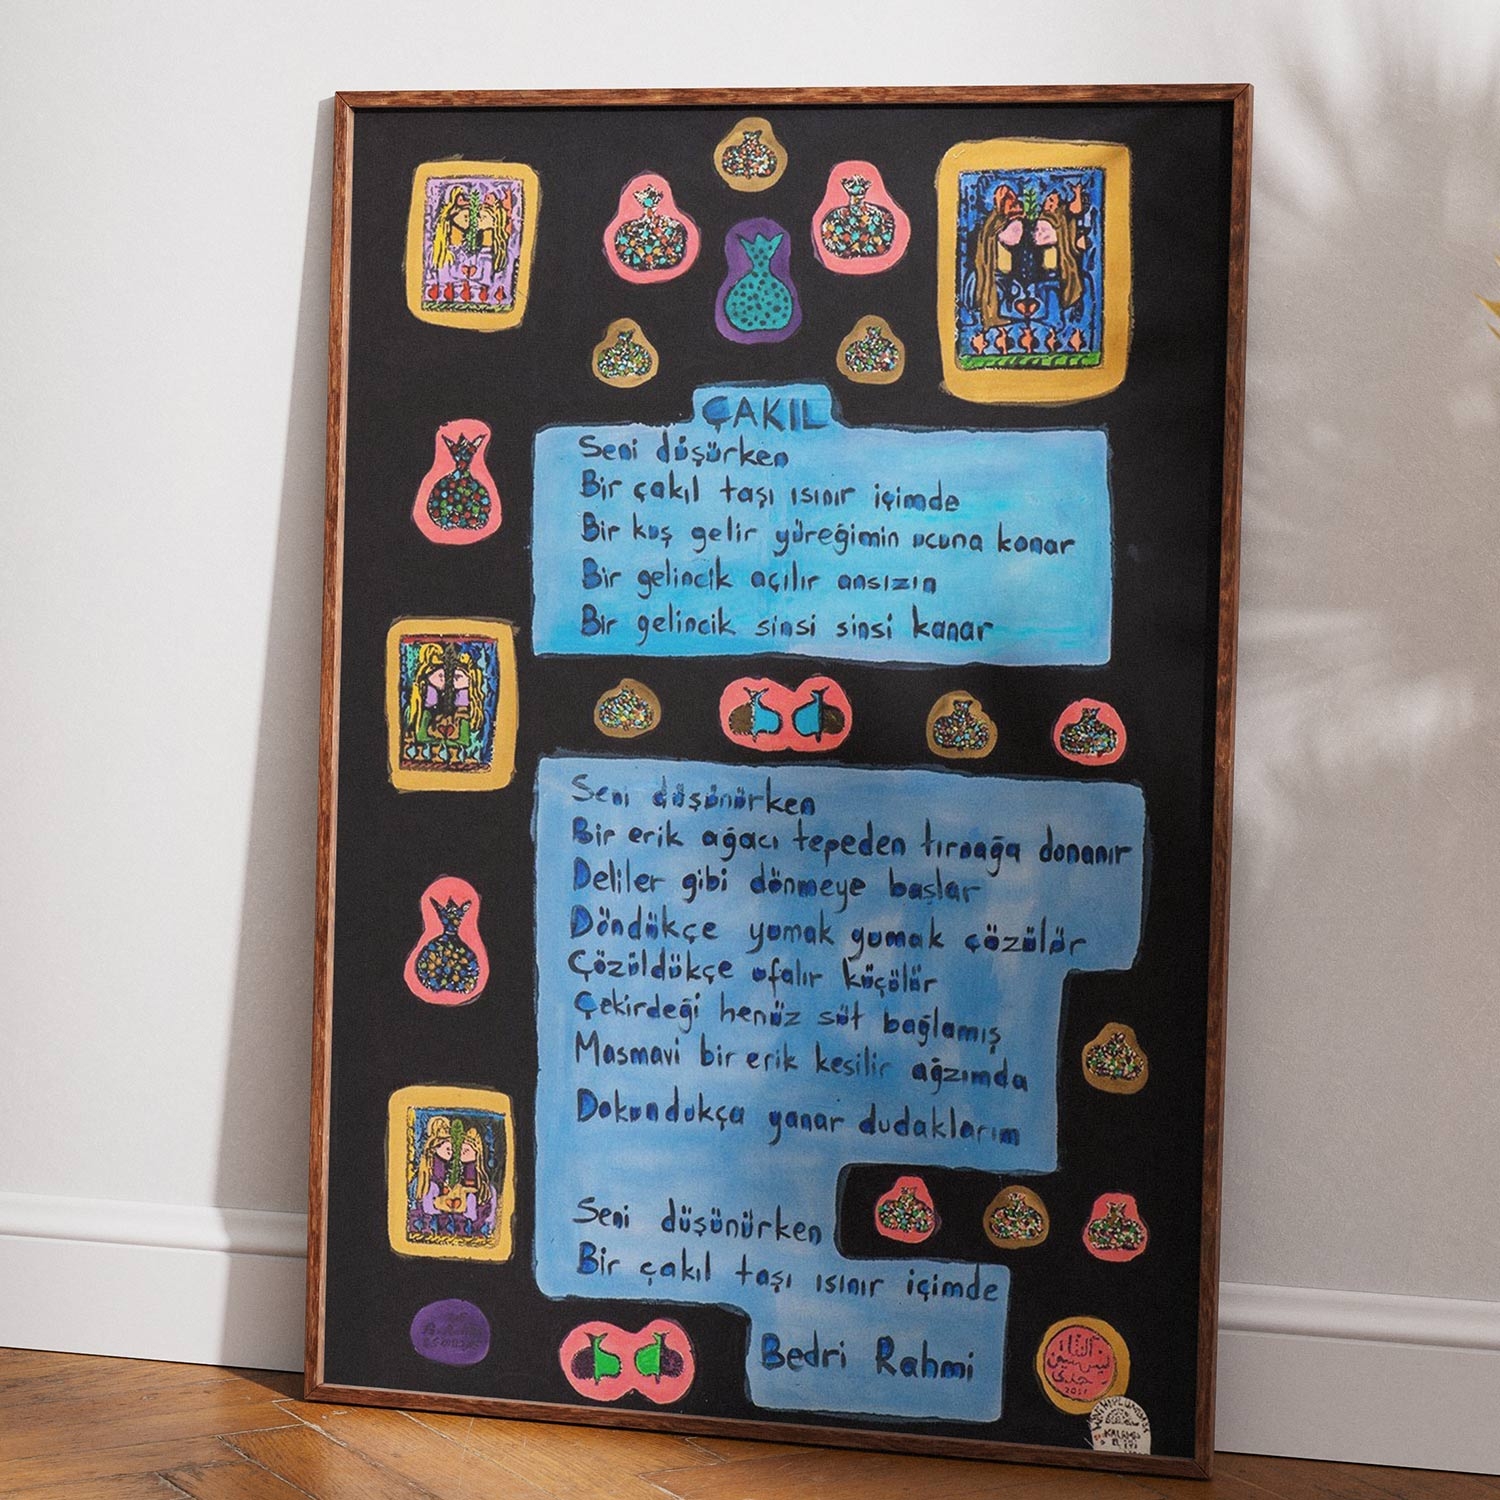 ÇAKIL
Seni düşürken
Bir çakıl taşı ısınır içimde
Bir kuş gelir yüreğimin ucuna konar
Bir gelincik açılır ansızın
Bir gelincik sinsi sinsi kanar
Seni düşünürken
Bir erik ağacı tepeden tırnağa donanır
Deliler gibi dönmeye başlar
Döndükçe yumak yumak çözülür
Çözüldükçe ufalır küçülür
Çekirdeği henüz süt bağlamış
Masmavi bir erik kesilir ağzımda
Dokundukça yanar dudaklarım
Seni düşünürken
Bir çakıl taşı ısınır içimde
Bedri Rahmi